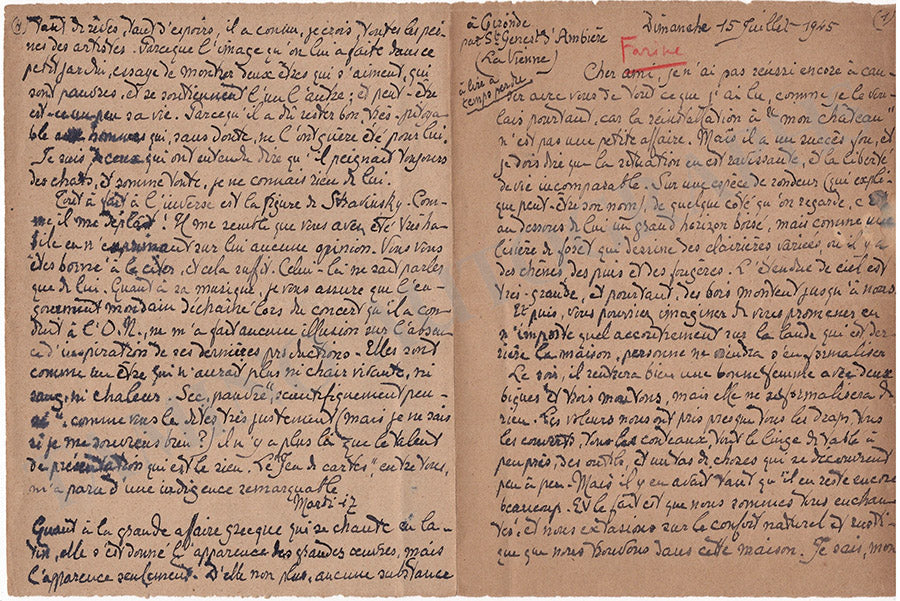 (1)
à Gironde
par St Genest d'Ambière
(La Vienne)
à lire à
temps perdu
Dimanche 15 Juillet - 1945
Farine
Cher ami, je n'ai pas réussi encore à cau-
ser avec vous de tout ce que j'ai lu, comme je le vou-
lais pourtant, car la réinstallation à "mon château"
n'est pas une petite affaire. Mais il a un succès fou, et
je dois dire que la situation en est ravissante, et la liberté
de vie incomparable. Sur une espèce de rondeur (qui expli-
que peut-être son nom), de quelque côté qu'on regarde, c'est
au dessous de lui un grand horizon boisé, mais comme une
lisière de forêt qui dessine des clairières variées où il y a
des chênes, des pins et des fougères. L'étendue de ciel est
très-grande, et pourtant, des bois montent jusqu'à nous.
Et puis, vous pourriez imaginer de vous promener en
n'importe quel accoutrement sur la lande qui est der-
rière la maison, personne ne viendra s'en formaliser
Le soir, il rentrera bien une bonne femme avec deux
biques et trois moutons, mais elle ne se formalisera de
rien. Les voleurs nous ont pris presque tous les draps, tous
les couverts, tous les couteaux, tout le linge de table à
peu près, des outils, et un tas de choses qui se découvrent
peu à peu. Mais il y en avait tant qu'il en reste encore
beaucoup. Et le fait est que nous sommes tous enchan-
tés, et nous extasions sur le confort naturel et rusti-
que que nous trouvons dans cette maison. Je sais, mon
(4)
Tant de rêves, tant d'espoirs, il a connu, je crois, toutes les pei-
nes des artistes. Parceque l'image qu'on lui a faite dans ce
petit jardin, essaye de montrer deux êtres qui s'aiment, qui
sont pauvres, et se soutiennent l'un l'autre; et peut-être
est-ce un peu sa vie. Parcequ'il a dû rester bon, très-pitoya-
ble aux hommes qui, sans doute, ne l'ont guère été pour lui.
Je suis de ceux qui ont entendu dire qu'il peignait toujours
des chats, et somme toute, je ne connais rien de lui.
Tout à fait à l'inverse est la figure de Stravinsky. Com-
me il me déplaît! Il me semble que vous avez été très ha-
bile en n'exprimant sur lui aucune opinion. Vous vous
êtes borné à le citer, et cela suffit. Celui-là ne sait parler
que de lui. Quant à sa musique, je vous assure que l'en-
gouement mondain déchaîné lors du concert qu'il a con-
duit à l'O.N., ne m'a fait aucune illusion sur l'absen-
ce d'inspiration de ses dernières productions. Elles sont
comme un être qui n'aurait plus ni chair vivante, ni
sang, ni chaleur. Sec, pauvre, "scientifiquement pen-
sé" comme vous le dites très justement (mais je ne sais
si je me souviens bien?) il n'y a plus là que le talent
de présentation qui est le rien. Le "Jeu de cartes" entre tous,
m'a paru d'une indigence remarquable
Mardi-17
Quant à la grande affaire grecque qui se chante en la-
tin, elle s'est donné l'apparence des grandes œuvres, mais
l'apparence seulement. D'elle non plus, aucune substance